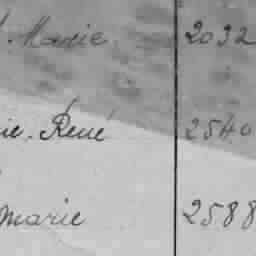 Marie 2032
ie. René 2540
marie 2588